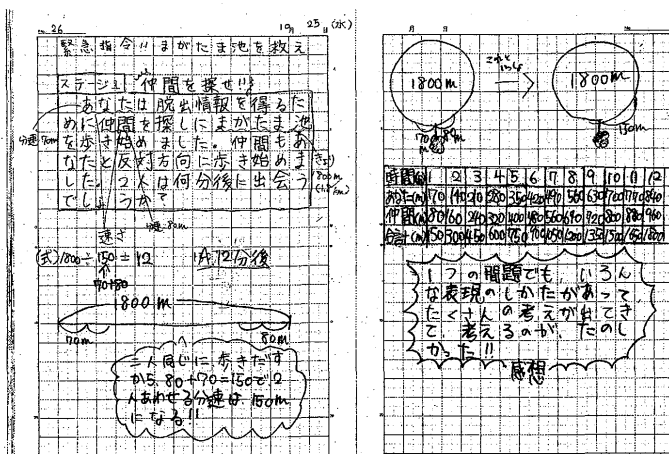 No. 26
10月 25日(水)
緊急指令!!まがたま池を救え
ステージ1 仲間を探せ!!
あなたは脱出情報を得るた
めに仲間を探しにまがたま池
を歩き始めました。仲間もあ
なたと反対方向に歩き始めま
した。2人は何分後に出会う
でしょうか?
分速70m
きょり
1800m
速さ
分速80m
(式)1800÷150=12
70+80
A.12分後
1800m
70m
80m
二人同じに歩きだす
から、80+70=150で2
人あわせる分速は、150m
になる!!
1800m
これと
いっしょ
1800m
70m
80m
150m
時間(分) 1 2 3 4 5 6 7 8 9 10 11 12
あなた(m) 70 140 210 280 350 420 490 560 630 700 770 840
仲間(m) 80 160 240 320 400 480 560 640 720 800 880 960
合計(m) 150 300 450 600 750 900 1050 1200 1350 1500 1650 1800
1つの問題でも、いろん
な表現のしかたがあって
たくさんの考えが出てき
て、考えるのが、たのし
かった!!
感想